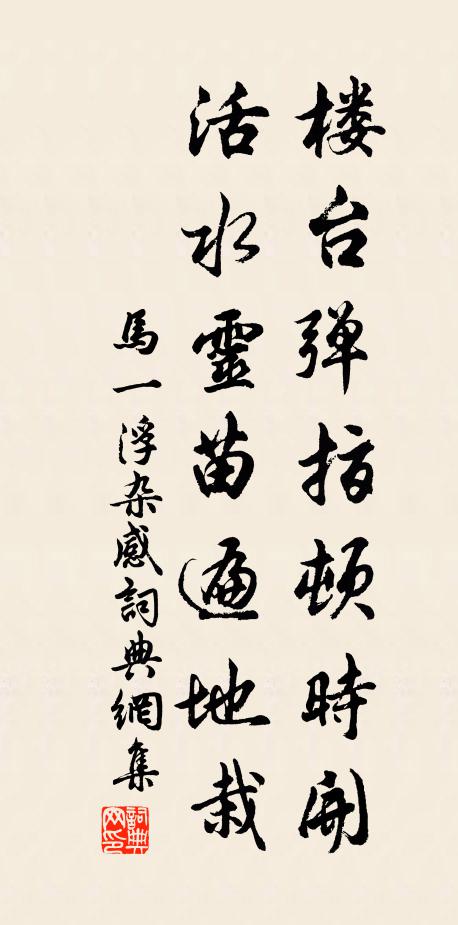 楼台弹指顿時開
活水靈苗遍地栽
馬一浮杂感詞典網集
詞典网印